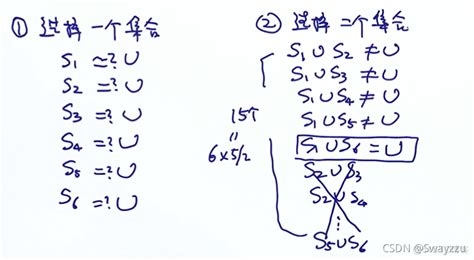 ① 选择一个集合
S₁ =? U
S₂ =? U
S₃ =? U
S₄ =? U
S₅ =? U
S₆ =? U
② 选择二个集合
S₁ ∪ S₂ ≠ U
S₁ ∪ S₃ ≠ U
S₁ ∪ S₄ ≠ U
S₁ ∪ S₅ ≠ U
S₁ ∪ S₆ = U
S₂ ∪ S₃
S₂ ∪ S₄
⋮
S₅ ∪ S₆
15个
=
6×5/2
CSDN @Swayzzu